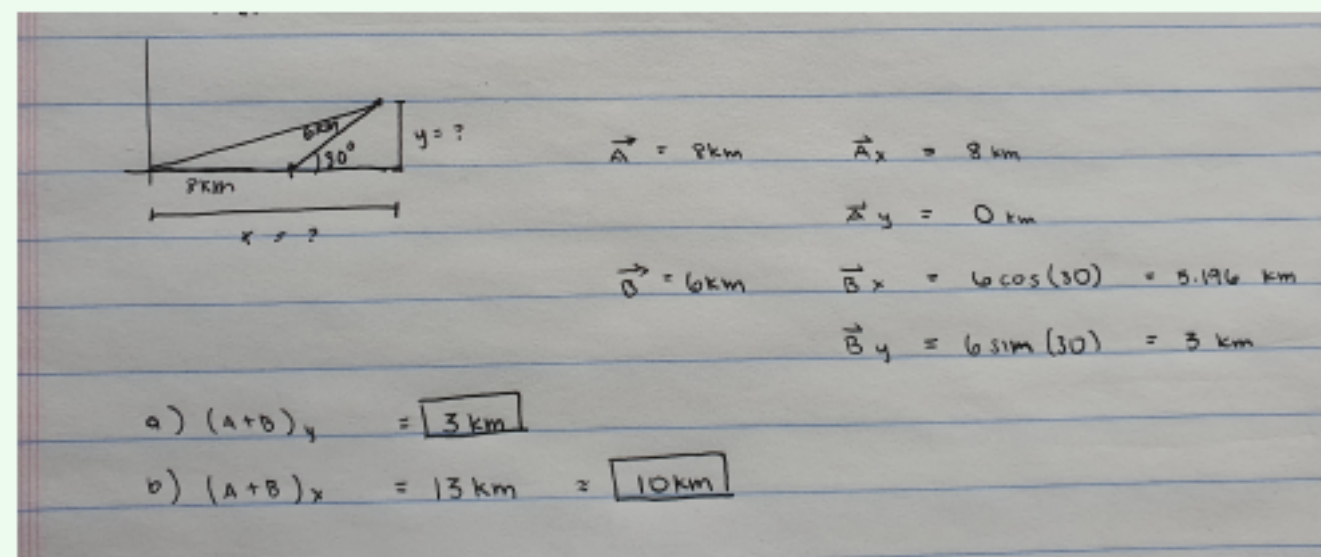 6km
y = ?
30°
8km
x = ?
A⃗ = 8km A⃗x = 8 km
A⃗y = 0 km
B⃗ = 6km B⃗x = 6 cos(30) = 5.196 km
B⃗y = 6 sin (30) = 3 km
a) (A+B)y = 3 km
b) (A+B)x = 13 km ≈ 10km